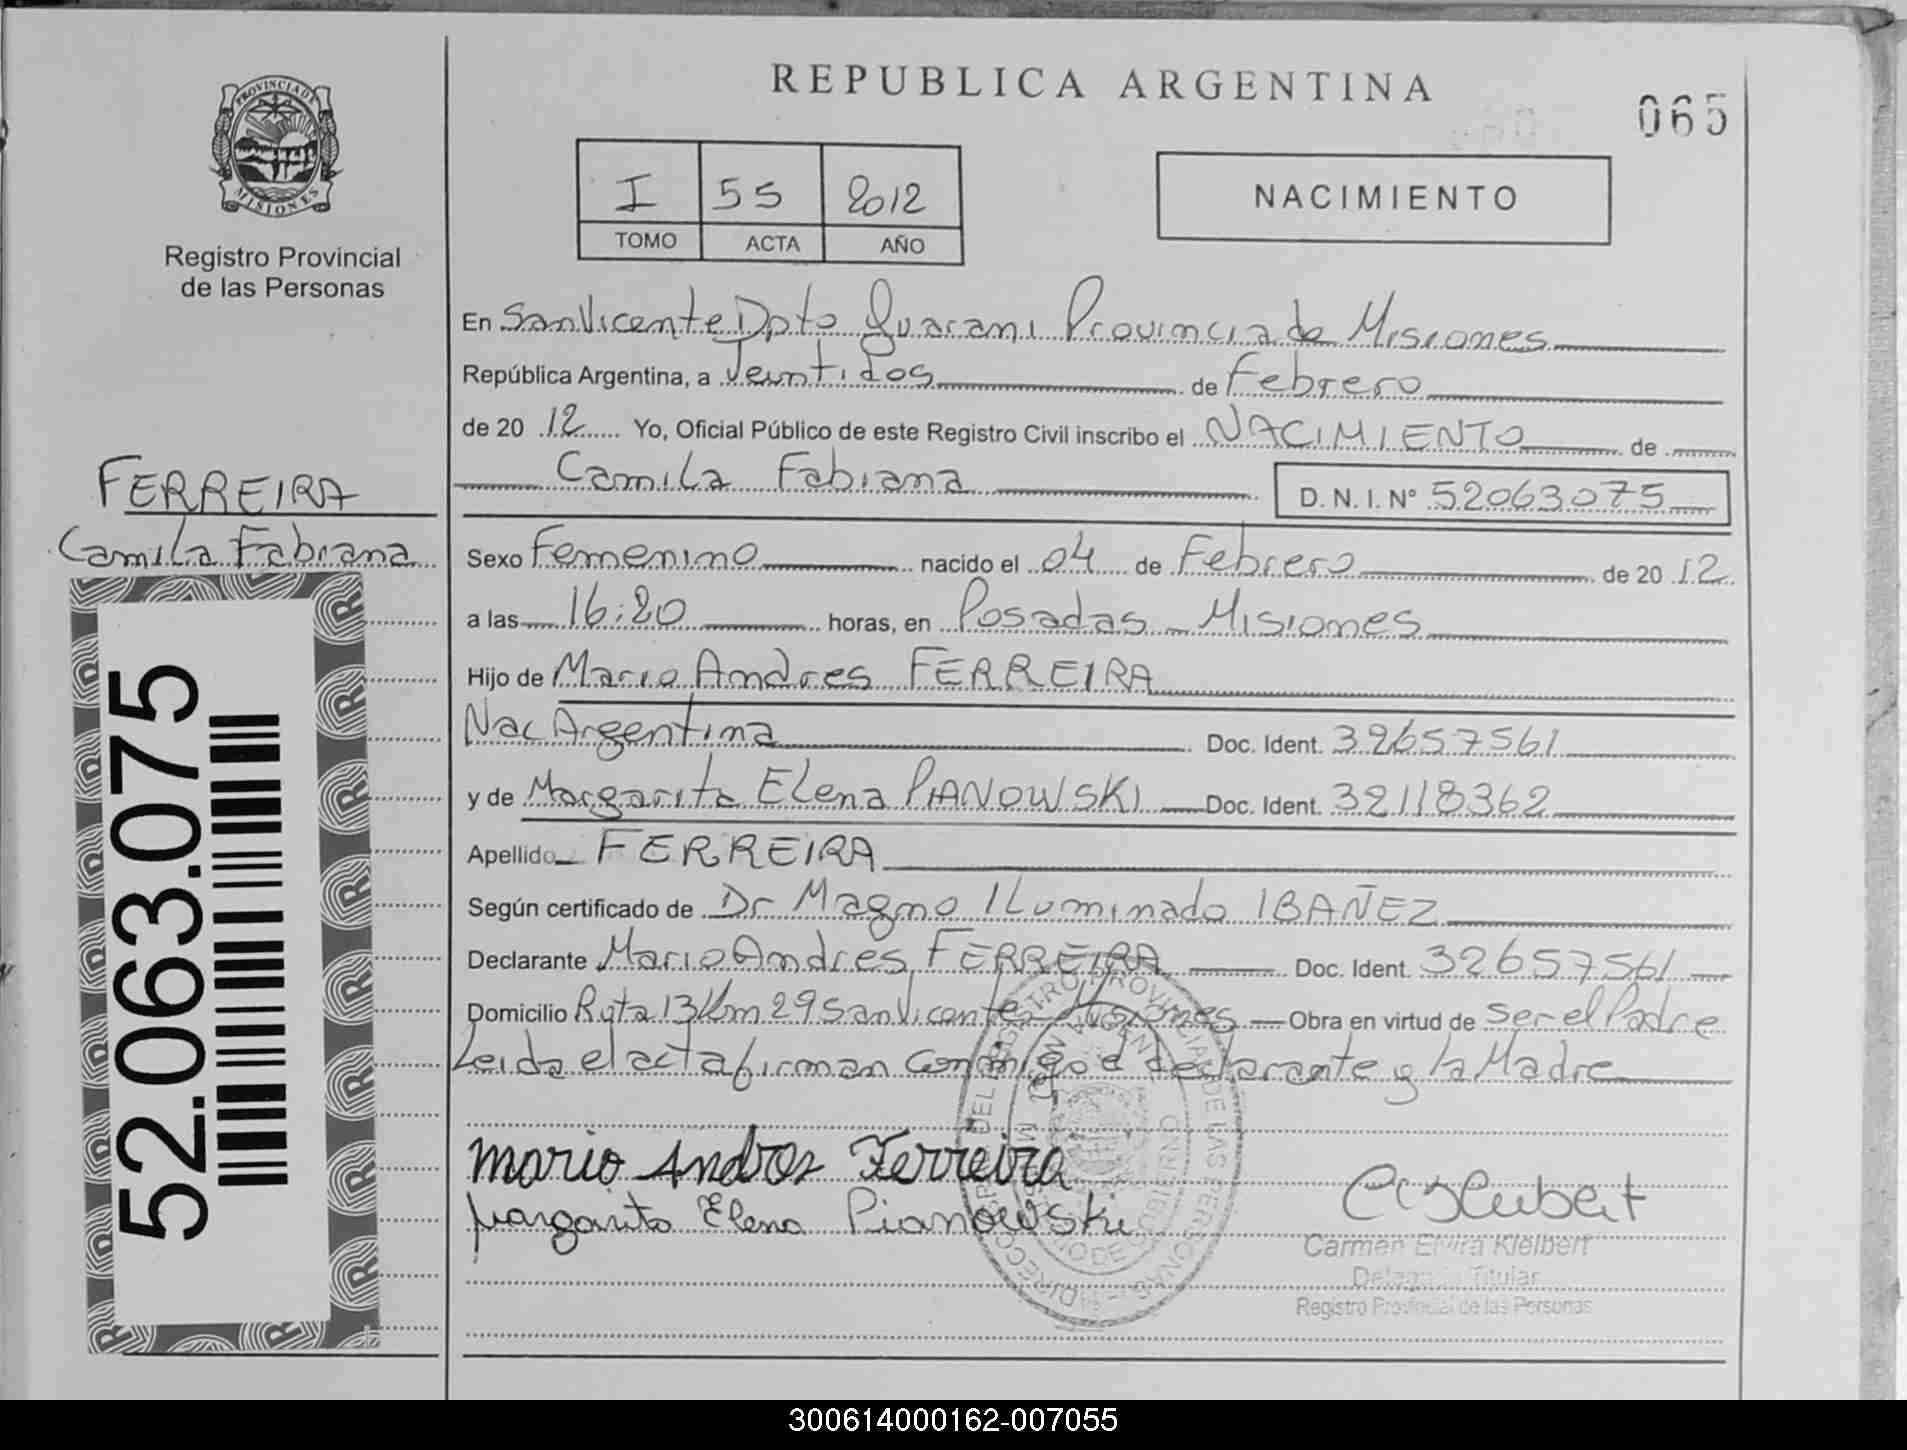 REPUBLICA ARGENTINA
065
PROVINCIA DE MISIONES
Registro Provincial
de las Personas
I 55 2012
TOMO ACTA AÑO
NACIMIENTO
En San Vicente Dpto Guarani Provincia de Misiones
República Argentina, a Veintidos de Febrero
de 20 12 Yo, Oficial Público de este Registro Civil inscribo el NACIMIENTO de
Camila Fabiana D. N. I. Nº 52063075
FERREIRA
Camila Fabiana
52.063.075
Sexo Femenino nacido el 04 de Febrero de 20 12
a las 16:20 horas, en Posadas - Misiones
Hijo de Mario Andres FERREIRA
Nac Argentina Doc. Ident. 32657561
y de Margarita Elena PIANOWSKI Doc. Ident. 32118362
Apellido FERREIRA
Según certificado de Dr Magno ILuminado IBAÑEZ
Declarante Mario Andres FERREIRA Doc. Ident. 32657561
Domicilio Ruta 13 Km 29 San Vicente Misiones Obra en virtud de ser el Padre
Leida el acta firman conmigo el declarante y la Madre
Mario Andres Ferreira
Margarita Elena Pianowski
Carmen Elvira Kleibert
Delegada Titular
Registro Provincial de las Personas
300614000162-007055